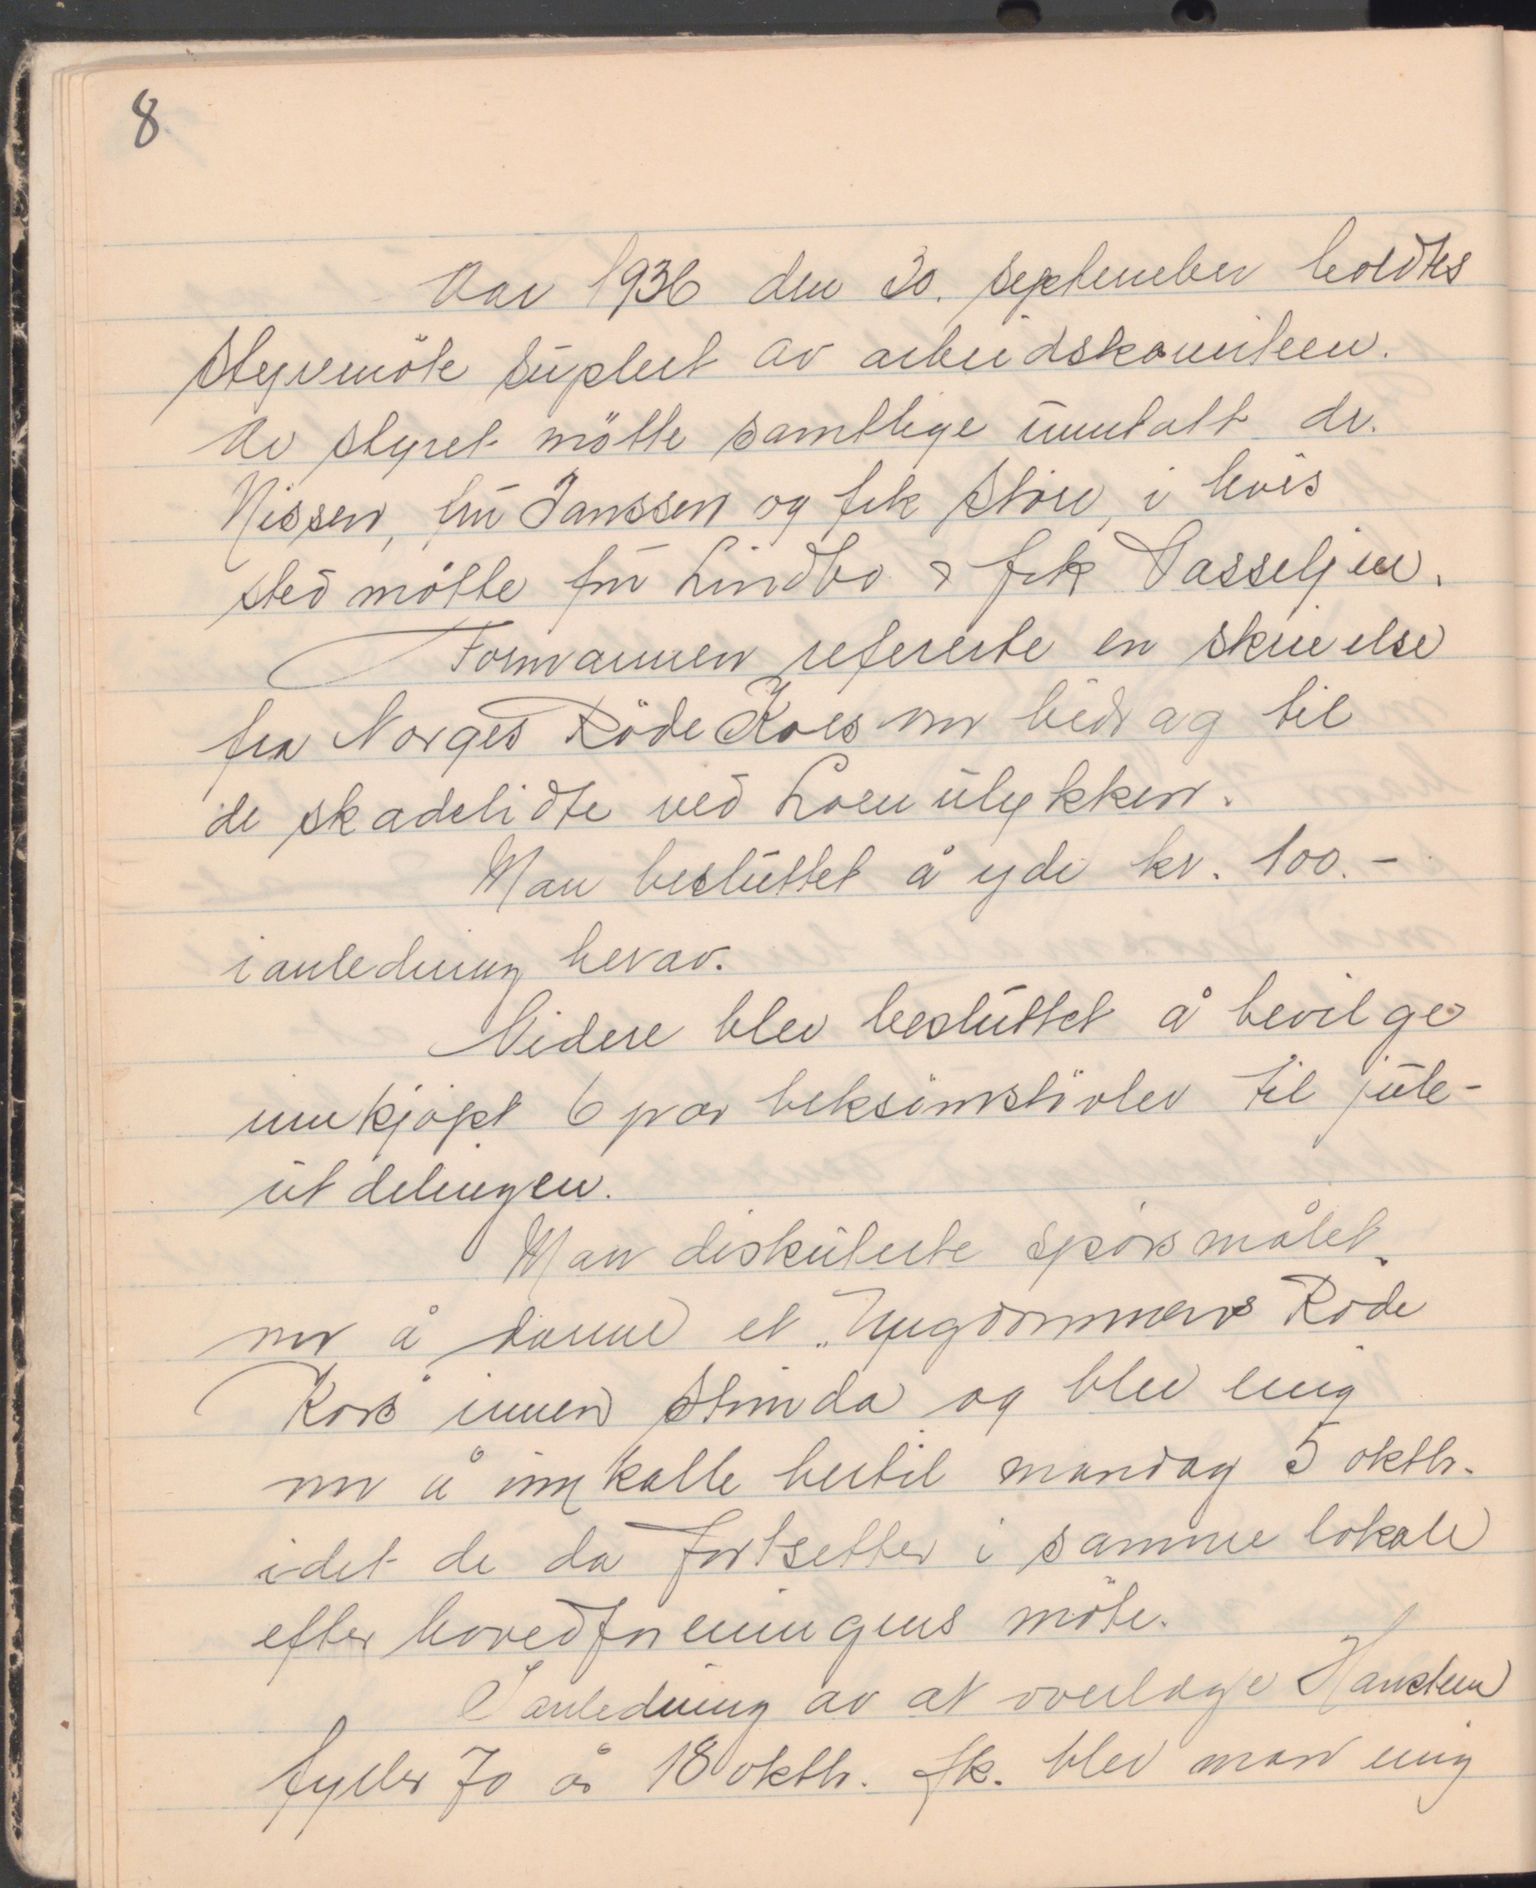 8
Aar 1936 den 30. september holdtes
styremöte suplert av arbeidskomiteen.
Av styret mötte samtlige unntatt dr.
Nissen, fru Janssen og frk Støre, i hvis
sted mötte fru Lindbo & frk Vasseljen.
Formannen refererte en skrivelse
fra Norges Röde Kors om bidrag til
de skadelidte ved Loenulykken.
Man besluttet å yde kr. 100.-
i anledning herav.
Videre blev besluttet å bevilge
innkjöpt 6 par beksömstövler til jule-
utdelingen.
Man diskuterte spörsmålet
om å danne et "Ungdommens Röde
Kors" innen Strinda og blev enig
om å innkalle hertil mandag 5 oktbr.
idet de da fortsetter i samme lokale
efter hovedforeningens möte.
I anledning av at overlæge Hansteen
fyller 70 år 18 oktbr. fk. blev man enig